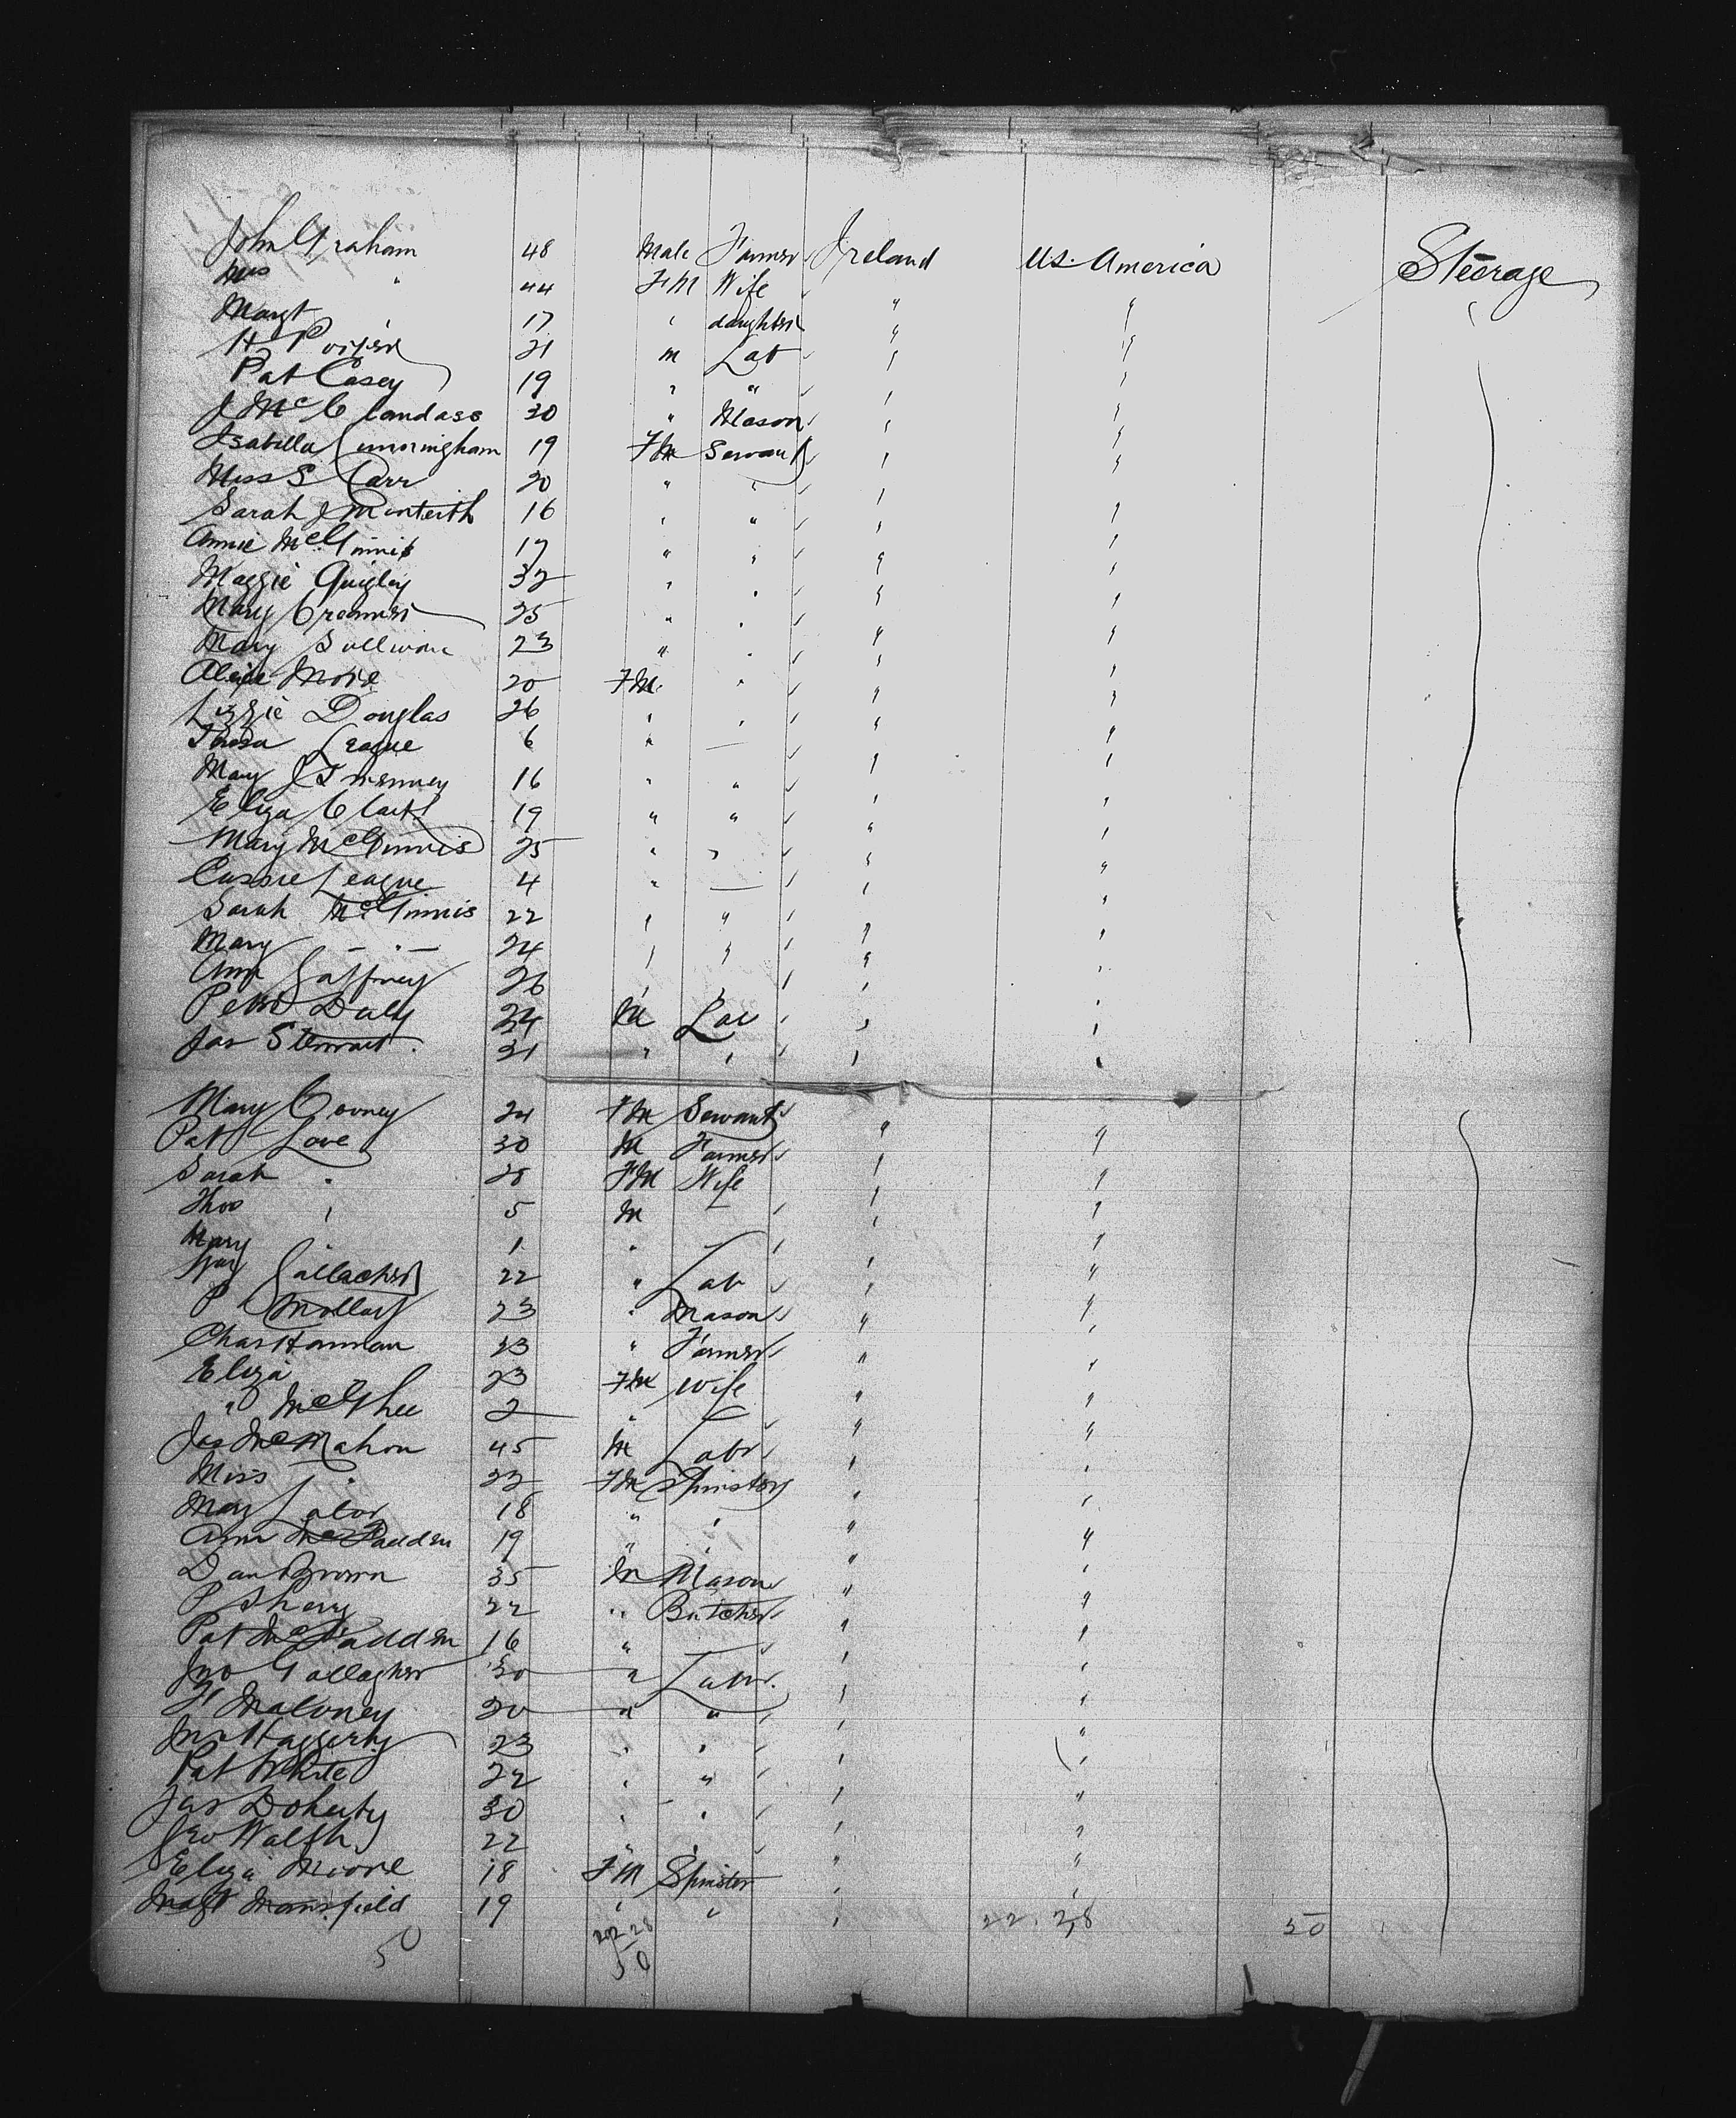 John Graham 48 Male Farmer Ireland U.S. America Steerage
Mrs " 44 FM Wife " "
Margt " 17 " daughter " "
H 21 m Lab " "
Pat Casey 19 " " " "
J McC 30 " Mason " "
Isabella Cunningham 19 FM Servant " "
Miss S Carr 20 " " " "
Sarah J Monteith 16 " " " "
Annie McGinnis 17 " " " "
Maggie Quigley 32 " " " "
Mary Creamer 25 " " " "
Mary Sullivan 23 " " " "
Alice 20 FM " " "
Lizzie Douglas 26 " " " "
Theresa League 6 " — " "
Mary J 16 " " " "
Eliza Clark 19 " " " "
Mary McGinnis 25 " " " "
Cassie League 4 " — " "
Sarah McGinnis 22 " " " "
Mary — " — 24 " " " "
Ann Gaffney 26 " " " "
Peter Daly 24 M Lab " "
Jas Stewart 31 " " " "
Mary Cooney 24 FM Servant " "
Pat Love 30 M Farmer " "
Sarah " 28 FM Wife " "
Thos " 5 M — " "
Mary 1 " — " "
Gallacher 22 " Lab " "
P Mollay 23 " Mason " "
Chas Hannan 23 " Farmer " "
Eliza 23 FM Wife " "
" McGhee 2 " — " "
Jas McMahon 45 M Labr " "
Miss " 22 FM Spinster " "
Mary Lalor 18 " " " "
Ann McFadden 19 " " " "
Dan Brown 35 M Mason " "
P Sherry 22 " Butcher " "
Pat McFadden 16 " " "
Jno Gallagher 30 " Labr. " "
F Maloney 20 " " " "
Jno Haggerty 23 " " " "
Pat White 22 " " " "
Jas Doherty 30 " " " "
Geo Walsh 22 " " " "
Eliza Moore 18 FM Spinster " "
Magt Mansfield 19 " " "
22. 28 50
22 28
50 50